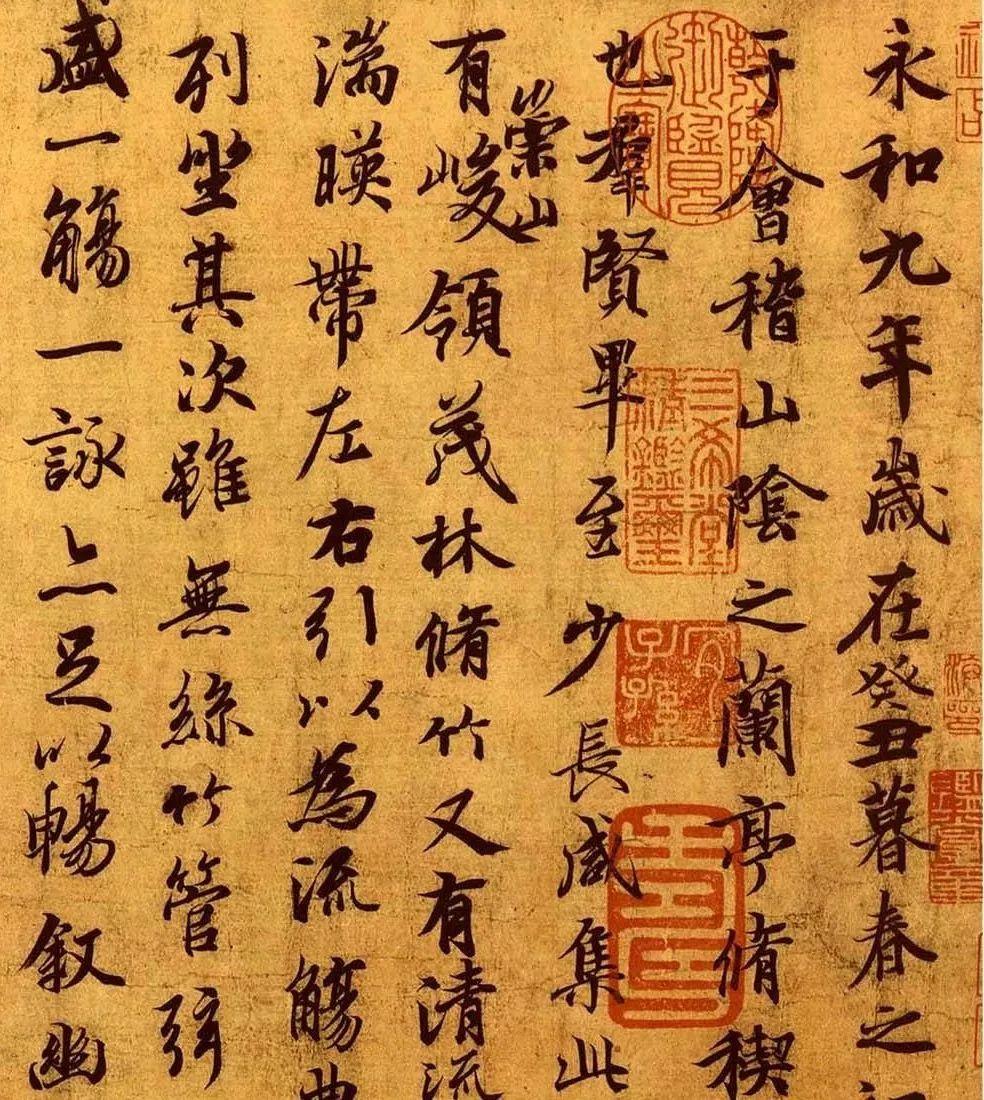 永和九年歲在癸丑暮春之
于會稽山陰之蘭亭脩稧
也羣賢畢至少長咸集此
崇山
有峻領茂林脩竹又有清流
湍暎帶左右引以為流觴曲
列坐其次雖無絲竹管弦
盛一觴一詠亦足以暢敘幽
乾隆御覽之寶
三希堂精鑑璽
宜子孫